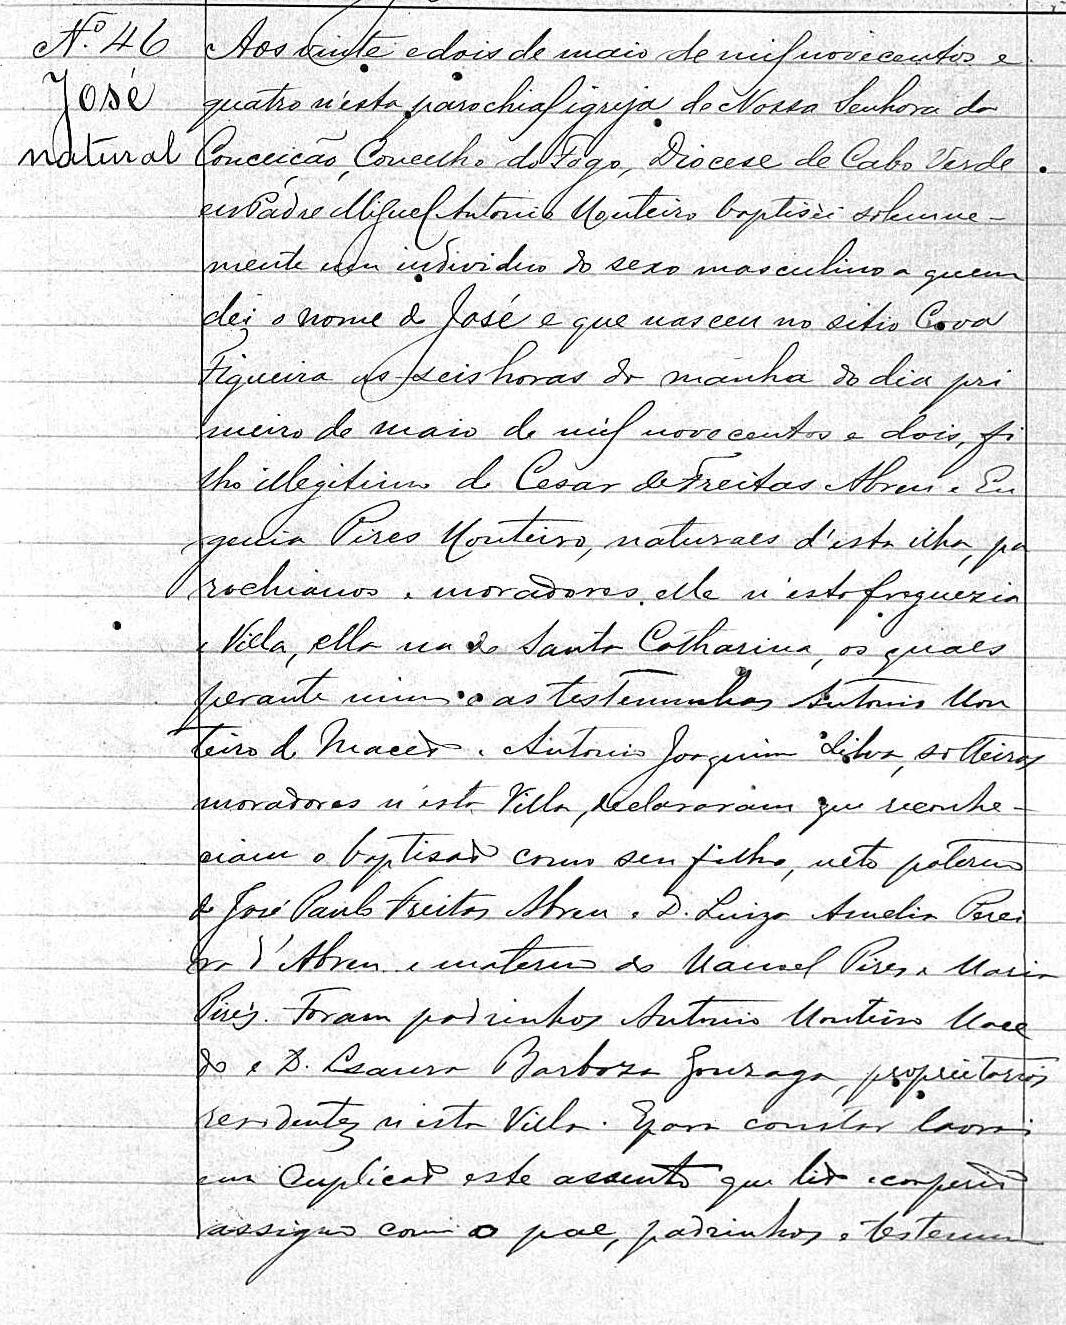 Nº 46
José
natural
Aos vinte e dois de maio de mil novecentos e
quatro n'esta parochial igreja de Nossa Senhora da
Conceição, Concelho do Fogo, Diocese de Cabo Verde
eu Padre Miguel Antonio Monteiro baptisei solemne-
mente um individuo do sexo masculino a quem
dei o nome de José e que nasceu no sitio Cova
Figueira as seis horas da manha do dia pri
meiro de maio de mil novecentos e dois, fi
lho illegitimo de Cesar de Freitas Abreu e Eu
genia Pires Monteiro, naturaes d'esta ilha, pa
rochianos e moradores elle n'esta freguezia
e Villa, ella na de Santa Catharina, os quaes
perante mim e as testemunhas Antonio Mon
teiro de Macedo e Antonio Joaquim Silva, solteiros
moradores n'esta Villa, declararam que reconhe-
ciam o baptisado como seu filho, neto paterno
de José Paulo Freitas Abreu e D. Luiza Amelia Perei
ra d'Abreu e materno de Manoel Pires e Maria
Pires. Foram padrinhos Antonio Monteiro Mace
do e D. Isaura Barboza Gonzaga, proprietarios
residentes n'esta Villa. E para constar lavrei
em duplicado este assento que lido e conferido
assigno com o pae, padrinhos e testemu